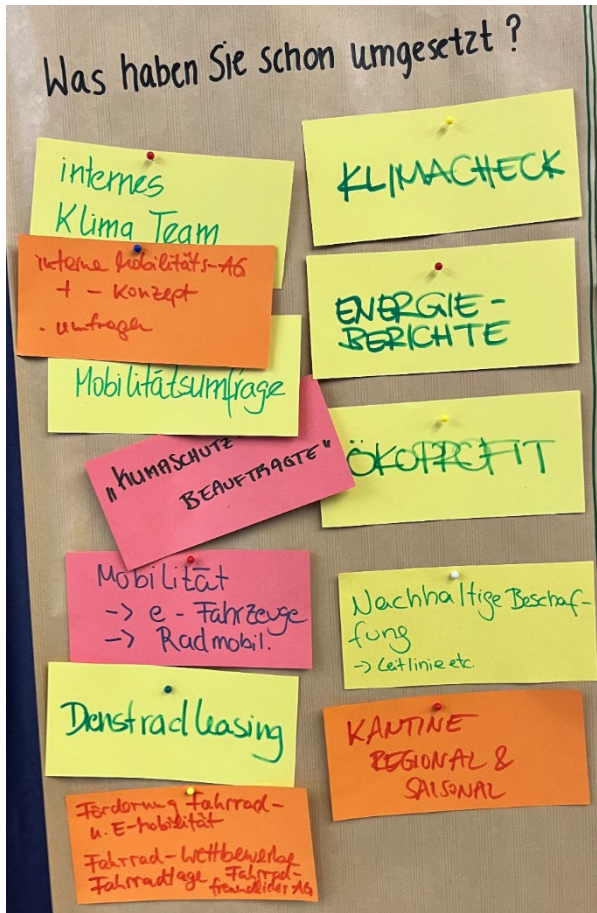 Was haben Sie schon umgesetzt ?
internes
Klima Team
interne Mobilitäts-AG
+ - Konzept
- umfragen
Mobilitätsumfrage
"KLIMASCHUTZ
BEAUFTRAGTE"
Mobilität
-> e - Fahrzeuge
-> Radmobil.
Dienstradleasing
Förderung Fahrrad-
u. E-Mobilität
Fahrrad-Wettbewerbe
Fahrradtage Fahrrad-
freundlicher AG
KLIMACHECK
ENERGIE-
BERICHTE
ÖKOPROFIT
Nachhaltige Beschaf-
fung
-> Leitlinie etc.
KANTINE
REGIONAL &
SAISONAL